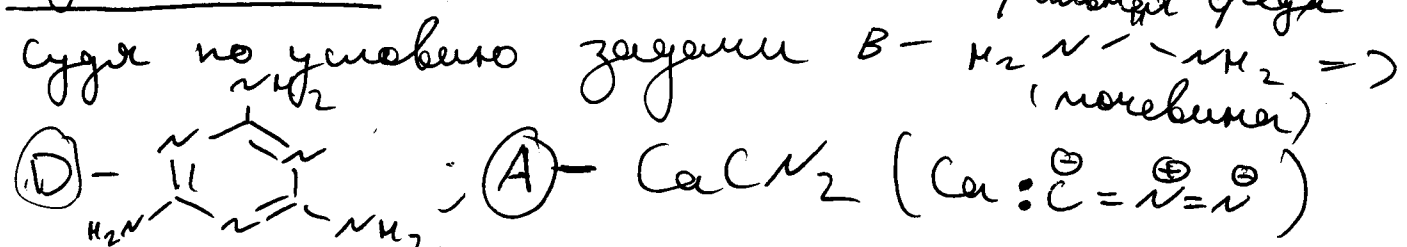 среда
судя по условию задачи B – H₂N NH₂ =>
(мочевина)
NH₂
(D) – N N H₂N N NH₂ ; (A) – CaCN₂ (Ca : C⊖ = N⊕ = N⊖)